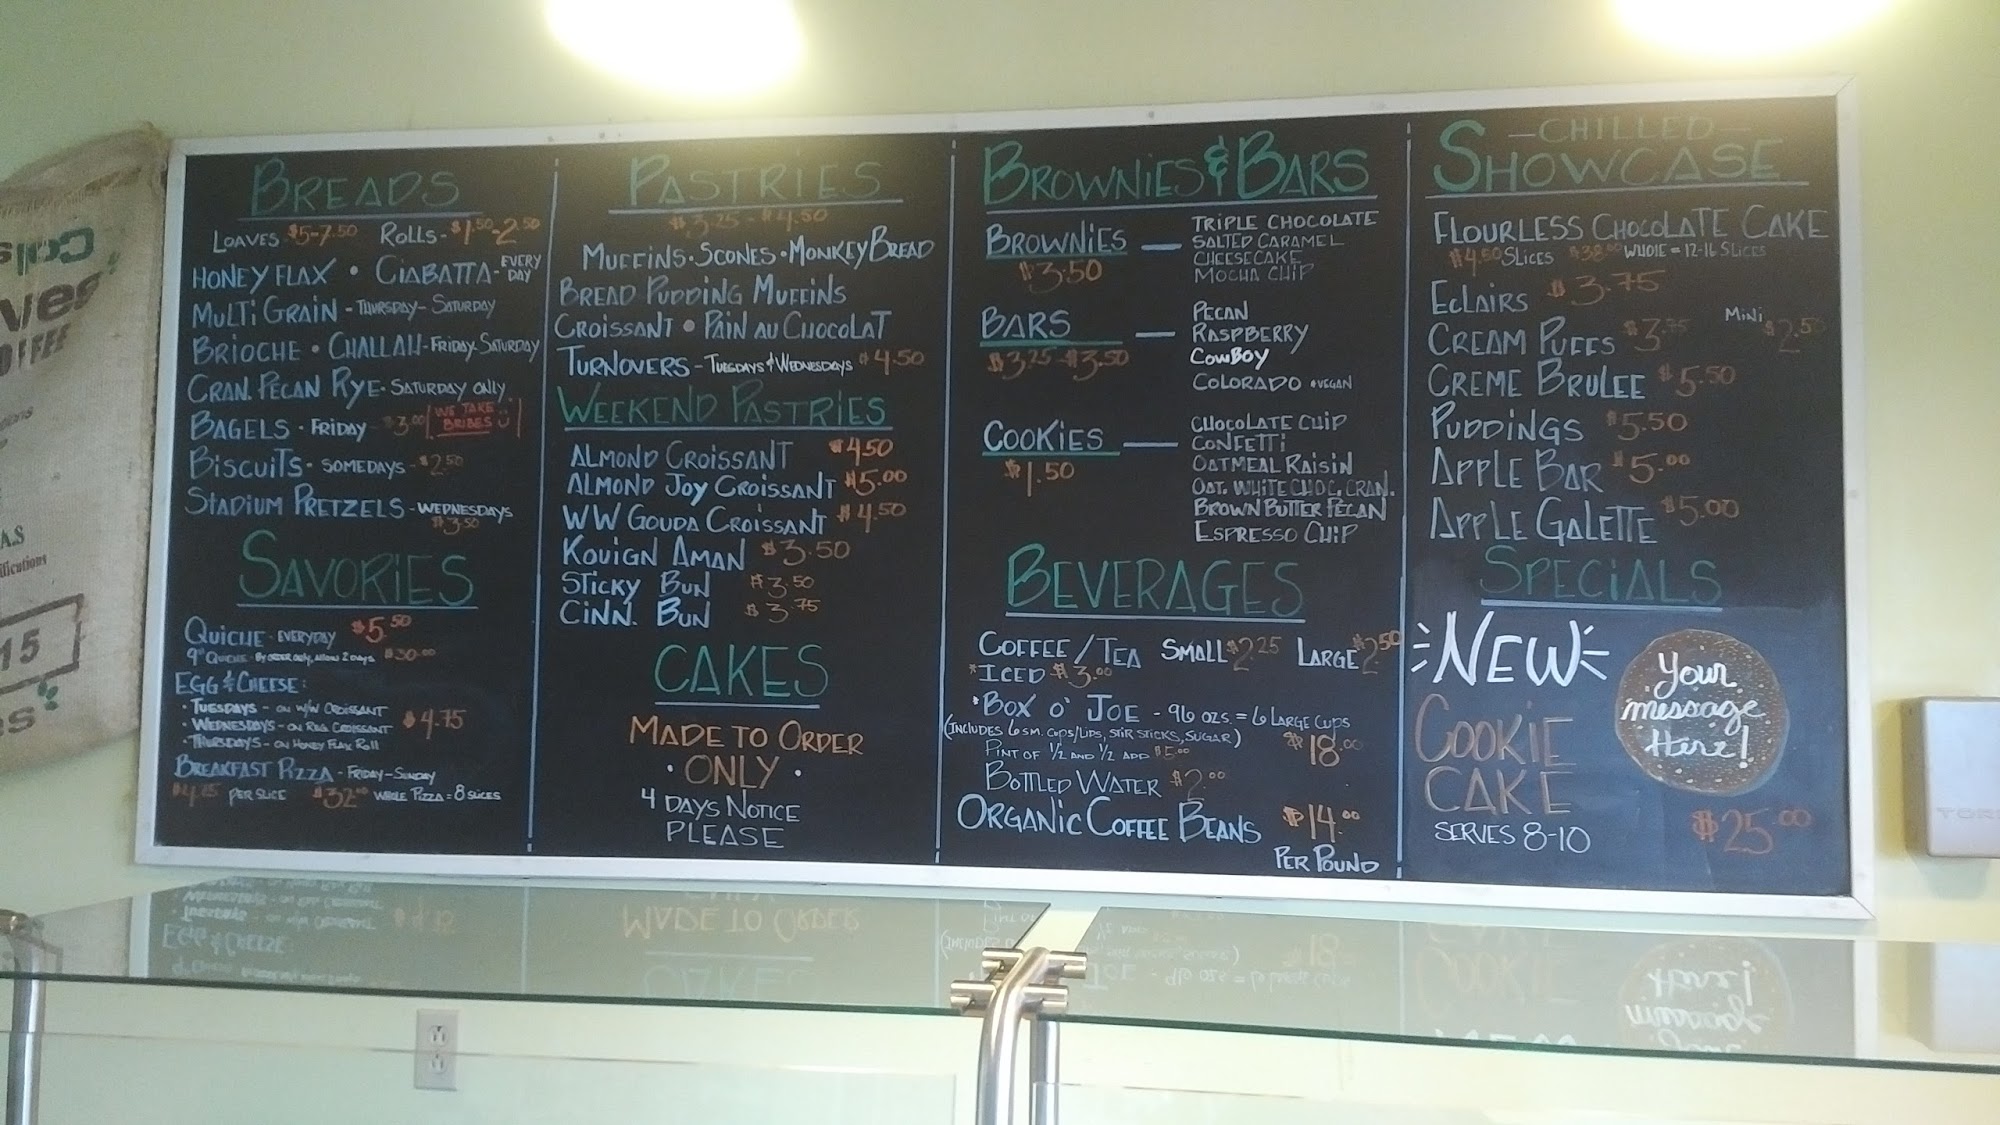 BREADS
LOAVES $5-7.50 ROLLS-$1.50-2.50
HONEY FLAX • CIABATTA-EVERY DAY
MULTI GRAIN - THURSDAY- SATURDAY
BRIOCHE • CHALLAH-FRIDAY-SATURDAY
CRAN. PECAN RYE- SATURDAY ONLY
BAGELS - FRIDAY - $3.00 WE TAKE BRIBES
BISCUITS- SOMEDAYS - $2.50
STADIUM PRETZELS - WEDNESDAYS
$3.50
SAVORIES
QUICHE - EVERYDAY $5.50
9" QUICHE - BY ORDER ONLY, ALLOW 2 DAYS $30.00
EGG & CHEESE:
• TUESDAYS - ON W/W CROISSANT
• WEDNESDAYS - ON REG CROISSANT $4.75
• THURSDAYS - ON HONEY FLAX ROLL
BREAKFAST PIZZA - FRIDAY-SUNDAY
PER SLICE $32.00 WHOLE PIZZA = 8 SLICES
PASTRIES
$3.25 - $4.50
MUFFINS • SCONES • MONKEY BREAD
BREAD PUDDING MUFFINS
CROISSANT • PAIN AU CHOCOLAT
TURNOVERS - TUESDAYS & WEDNESDAYS $4.50
WEEKEND PASTRIES
ALMOND CROISSANT $4.50
ALMOND JOY CROISSANT $5.00
WW GOUDA CROISSANT $4.50
KOUIGN AMAN $3.50
STICKY BUN $3.50
CINN. BUN $3.75
CAKES
MADE TO ORDER
• ONLY •
4 DAYS NOTICE
PLEASE
BROWNIES & BARS
BROWNIES — TRIPLE CHOCOLATE
$3.50 SALTED CARAMEL
CHEESECAKE
MOCHA CHIP
BARS — PECAN
$3.25-$3.50 RASPBERRY
COWBOY
COLORADO •VEGAN
COOKIES — CHOCOLATE CHIP
$1.50 CONFETTI
OATMEAL RAISIN
OAT. WHITE CHOC. CRAN.
BROWN BUTTER PECAN
ESPRESSO CHIP
BEVERAGES
COFFEE/TEA SMALL $2.25 LARGE $2.50
*ICED $3.00
*BOX O' JOE - 96 OZS = 6 LARGE CUPS
(INCLUDES 6 SM. CUPS/LIDS, STIR STICKS, SUGAR) $18.00
PINT OF 1/2 AND 1/2 ADD $5.00
BOTTLED WATER $2.00
ORGANIC COFFEE BEANS $14.00
PER POUND
—CHILLED—
SHOWCASE
FLOURLESS CHOCOLATE CAKE
$4.50 SLICES $38.00 WHOLE = 12-16 SLICES
ECLAIRS $3.75
CREAM PUFFS $3.75 MINI $2.50
CREME BRULEE $5.50
PUDDINGS $5.50
APPLE BAR $5.00
APPLE GALETTE $5.00
SPECIALS
NEW
COOKIE
CAKE
SERVES 8-10
Your
message
Here!
$25.00